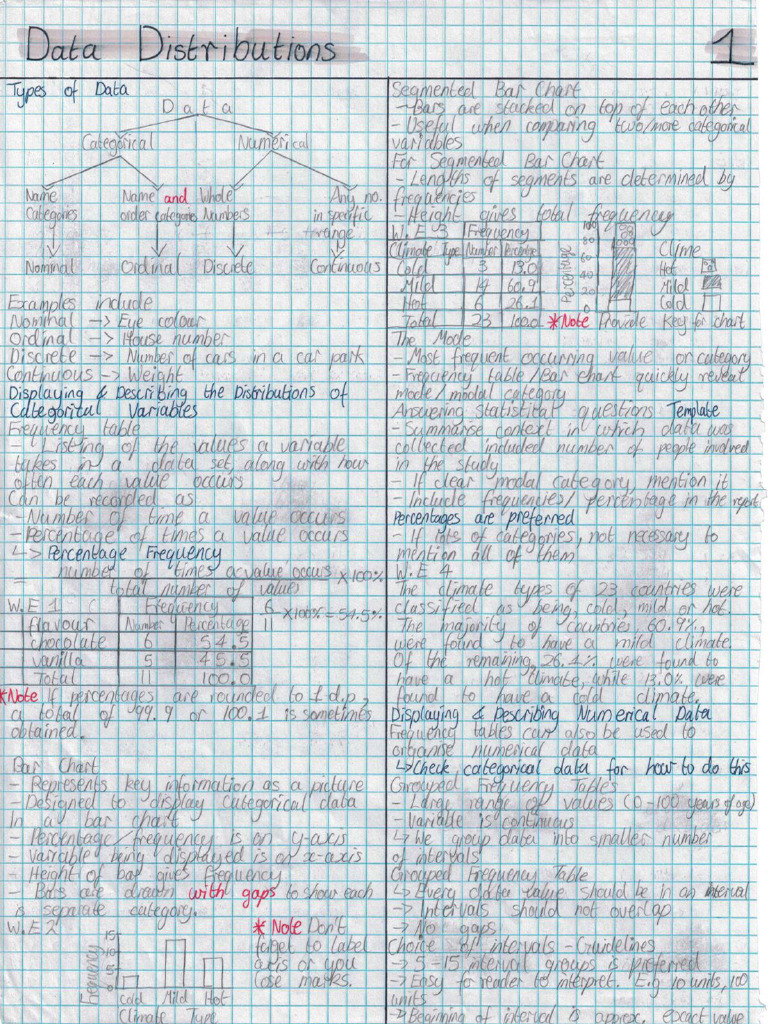 Data Distributions
1
Types of Data
Data
Categorical
Numerical
Name Categories
Name and order categories
Whole Numbers
Any no. in specific range
Nominal
Ordinal
Discrete
Continuous
Examples include
Nominal -> Eye colour
Ordinal -> House number
Discrete -> Number of cars in a car park
Continuous -> Weight
Displaying & Describing the Distributions of
Categorital Variables
Frequency table
- Listing of the values a variable
takes in a data set, along with how
often each value occurs
Can be recorded as
- Number of time a value occurs
- Percentage of times a value occurs
↳> Percentage Frequency
number of times a value occurs x 100%
total number of values
W.E 1
Frequency
6
x100% = 54.5%
11
flavour Number Percentage
chocolate 6 54.5
vanilla 5 45.5
Total 11 100.0
*Note If percentages are rounded to 1 d.p,
a total of 99.9 or 100.1 is sometimes
obtained.
Bar Chart
- Represents key information as a picture
- Designed to display categorical data
In a bar chart
- Percentage/frequency is on y-axis
- Variable being displayed is on x-axis
- Height of bar gives frequency
- Bars are drawn with gaps to show each
is separate category.
W.E 2
* Note Don't
forget to label
axis or you
lose marks.
Frequency
15
10
5
0
Cold Mild Hot
Climate Type
Segmented Bar Chart
- Bars are stacked on top of each other
- Useful when comparing two/more categorical
variables
For Segmented Bar Chart
- Lengths of segments are determined by
frequencies
- Height gives total frequency
W.E 3 Frequency
Climate Type Number Percentage
Cold 3 13.0
Mild 14 60.9
Hot 6 26.1
Total 23 100.0
Percentage
100
80
60
40
20
0
Clime
Hot
Mild
Cold
*Note Provide key for chart
The Mode
- Most frequent occurring value or category
- Frequency table/bar chart quickly reveat
mode/modal category
Answering Statistital questions: Template
- Summarise context in which data was
collected included number of people involved
in the study
- If clear modal category, mention it
- Include frequencies/percentage in the report
Percentages are preferred
- If lots of categories, not necessary to
mention all of them
W.E 4
The climate types of 23 countries were
classified as being, cold, mild or hot.
The majority of countries, 60.9%,
were found to have a mild climate.
Of the remaining, 26.1% were found to
have a hot climate, while 13.0% were
found to have a cold climate.
Displaying & Describing Numerical Data
Frequency tables can also be used to
organise numerical data
↳Check categorical data for how to do this
Grouped Frequency Tables
- Large range of values (0-100 years of age)
- Variable is continuous
↳ We group data into smaller number
of intervals
Grouped Frequency Table
↳ Every data value should be in an interval
-> Intervals should not overlap
-> No gaps
Choice of intervals - Guidelines
-> 5-15 interval groups is preferred
-> Easy for reader to interpret. E.g 10 units, 100
units
-> Beginning of interval is approx. exact value